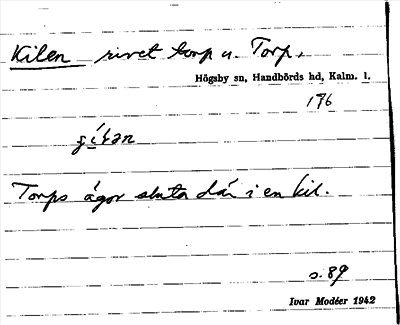 Kilen rivet torp u. Torp,
Högsby sn, Handbörds hd, Kalm. l.
176
Torps ägor sluta där i en kil.
s. 89
Ivar Modéer 1942